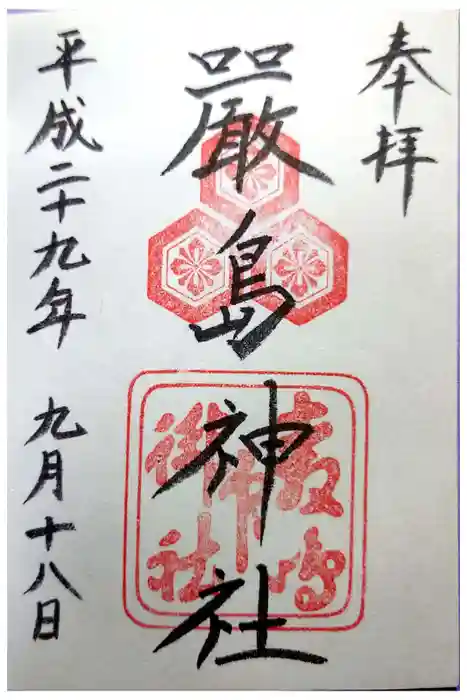 奉拝
嚴島神社
平成二十九年 九月十八日